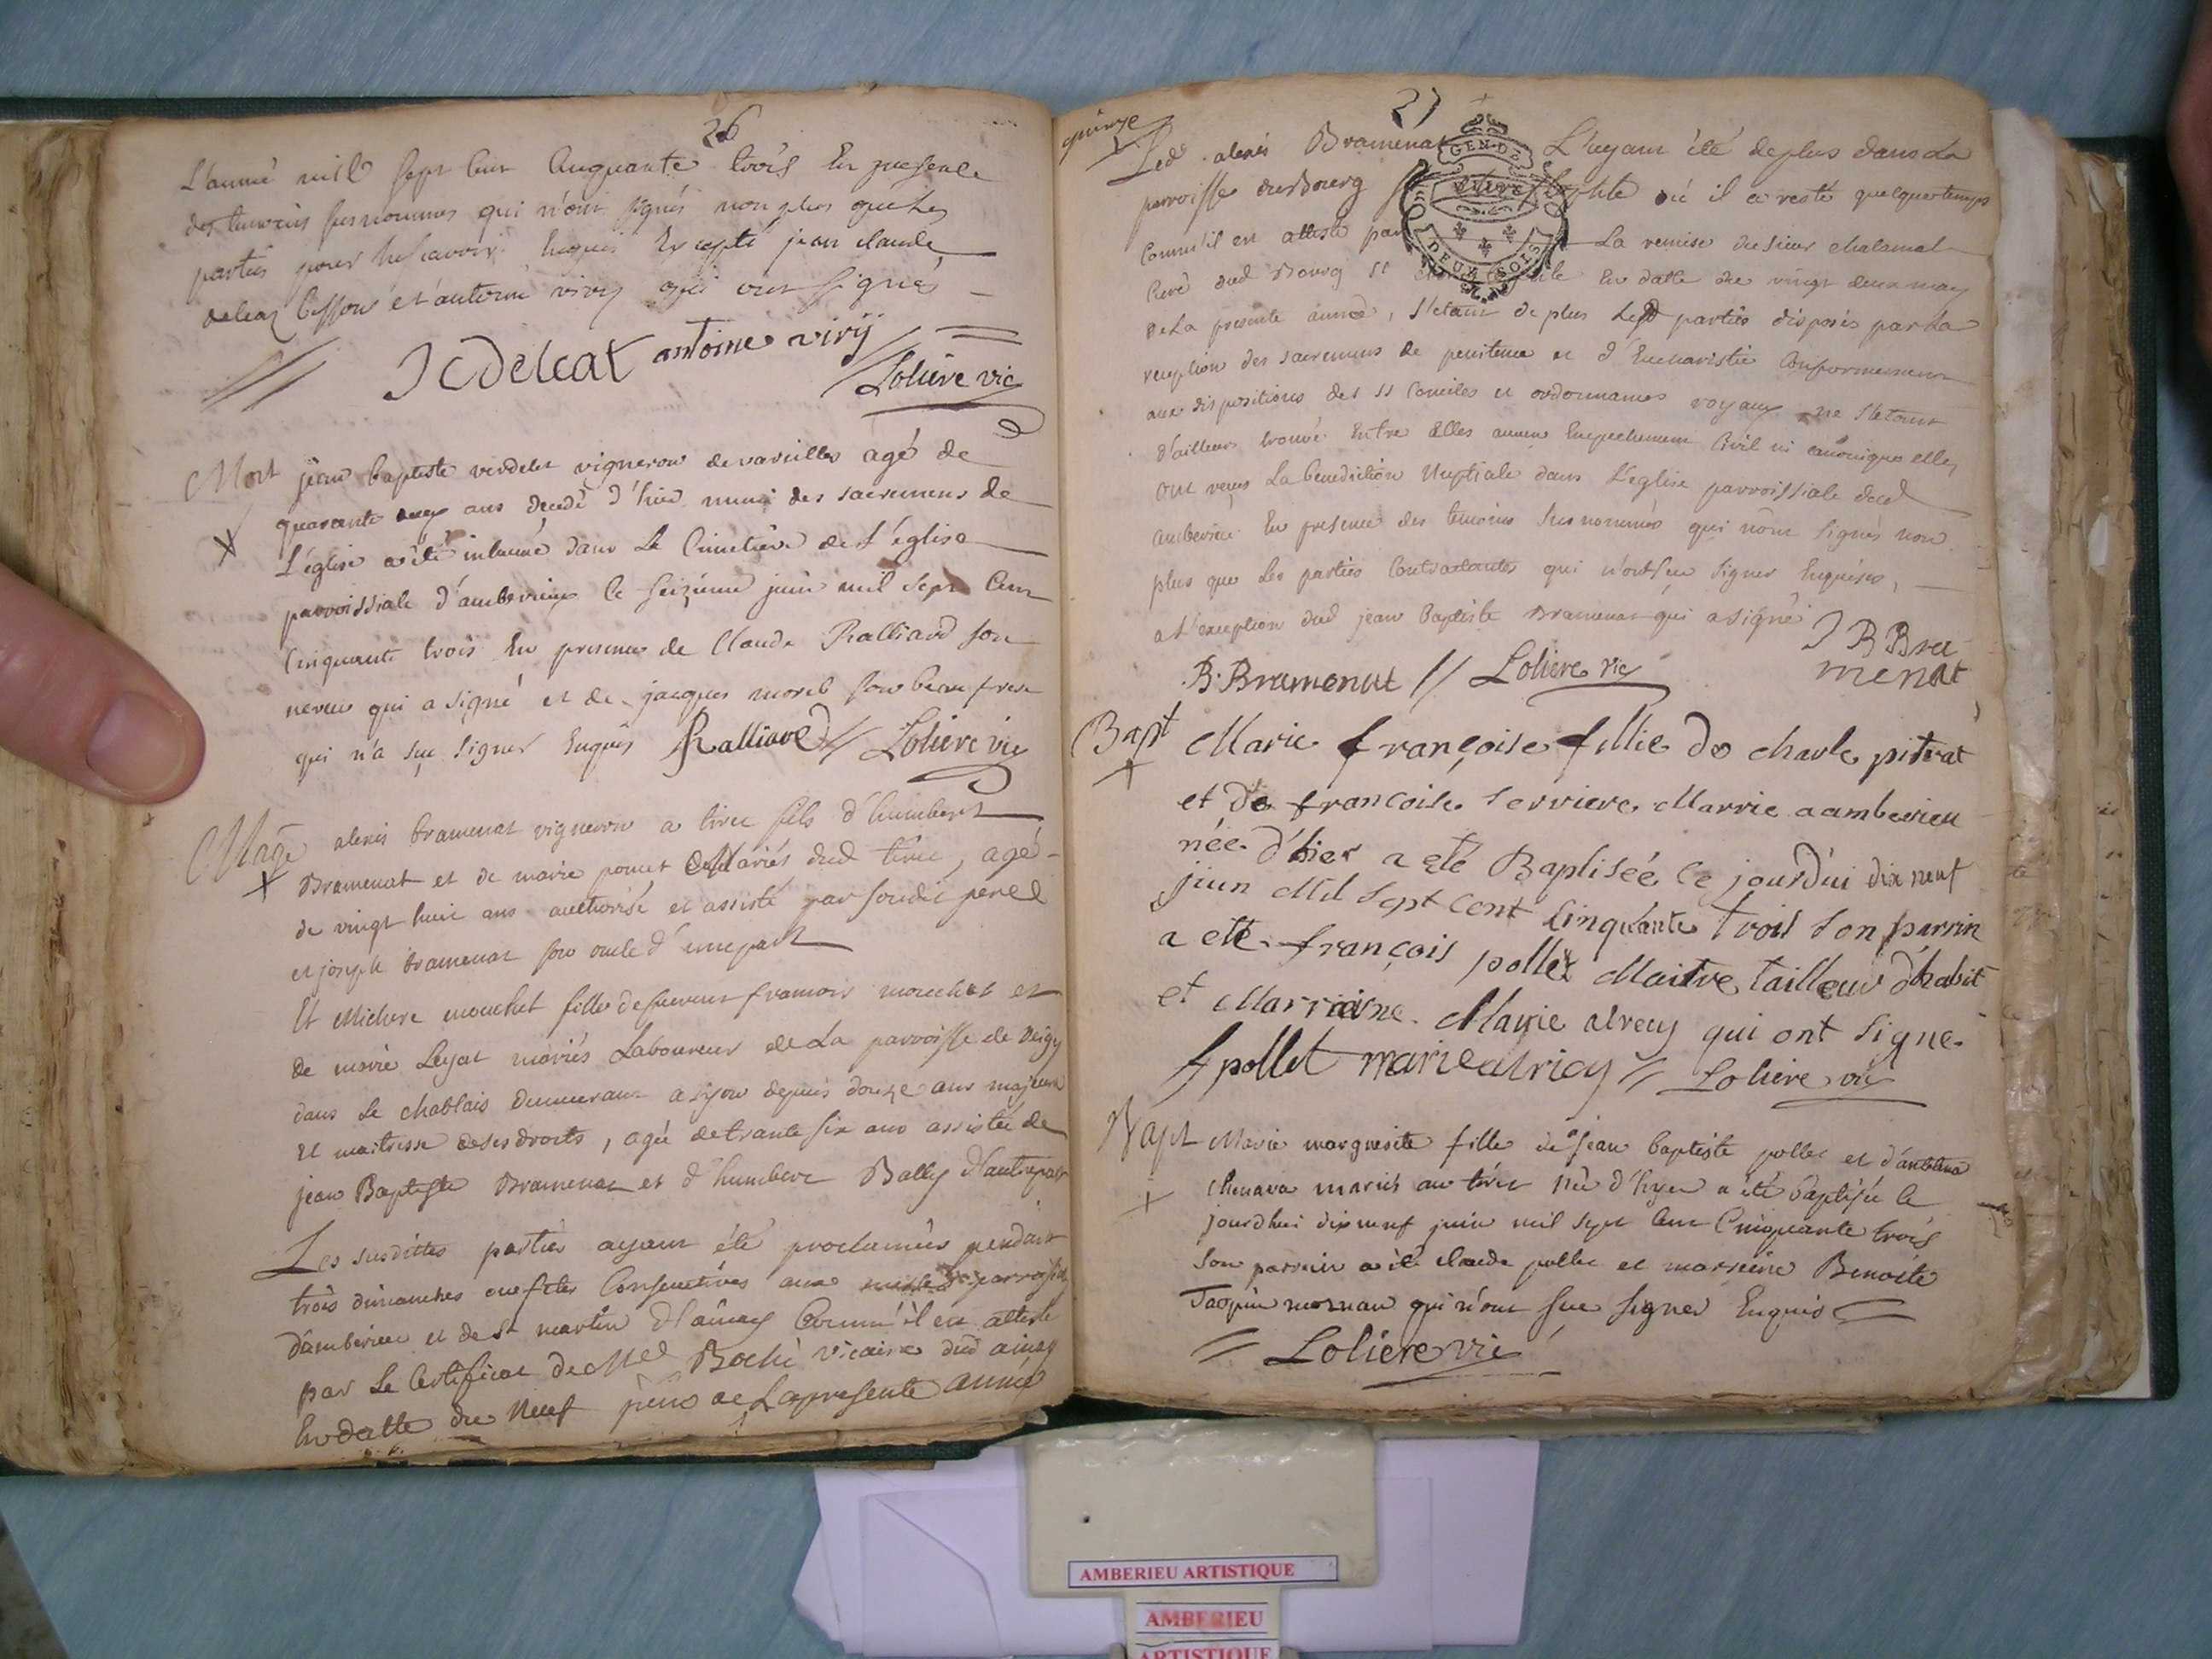 26
L'année mil sept cent cinquante trois en presence
des temoins susnommés qui n'ont signés non plus que les
parties pour ne scavoir enquis excepté jean claude
delcaz et antoine viry qui ont signés
JC Delcat antoine viry
Loliere vic
Mort jean baptiste verdelet vigneron de vareilles agé de
quarante ans decedé d'hier muni des sacremens de
L'église a été inhumé dans le Cimetiere de L'église
parroissiale d'amberieux le seizieme juin mil sept cent
cinquante trois en presence de Claude Ralliard son
neveu qui a signé et de jacques morel son beau frere
qui n'a sçu signer enquis Ralliard Loliere vic
Mage alexis bramenat vigneron a tiret fils d'humbert
Bramenat et de marie poncet mariés dud tiret, agé
de vingt huit ans authorisé et assisté par soudit pere
et joseph bramenat son oncle d'une part
Et Michere mouchet fille de françois mouchet et
de marie Leyat mariés Laboureur de La parroisse de
dans le chablais demeurant a lyon depuis douze ans majeure
et maitresse de ses droits, agée de trante six ans assistée de
jean Baptiste Bramenat et d'humbert Bally d'autre part
Les susdittes parties ayant été proclamées pendant
trois dimanches ou festes Consecutives aux parroissiales
d'amberieu et de st martin d'ainay Comme il en atteste
par Le Certificat de Bochè vicaire dud ainay
en datte du Neuf juin de La presente année
27
quinze
Led alexis Bramenat L'ayant été de plus dans La
parroisse du Bourg où il a resté quelque temps
comme il en atteste par La remise du sieur chalamel
Curé dud Bourg st en datte du vingt deux may
de La presente année, s'etant de plus Lesd parties disposés par La
reception des sacremens de penitence et d'Eucharistie Conformement
aux dispositions des ss Conciles et ordonnances royaux ne s'etant
d'ailleurs trouvé entre elles aucun empechement Civil ni canonique elles
ont reçus La benediction Nuptiale dans L'eglise parroissiale dud
amberieu En presence des temoins susnommés qui n'ont signés non
plus que Les parties Contractantes qui n'ont sçu signer enquises,
a L'exception dud jean baptiste Bramenat qui a signé
J B Bra
menat
B. Bramenat Loliere vic
GEN. DE
DEUX SOLS
Bapt Marie françoise fillie de charle pitrat
et de françoise serriere Marrie a amberieu
née d'hier a eté Baptisée ce jourd'ui dix neuf
juin Mil sept cent cinquante trois son parrin
a eté françois pollet Maitre tailleur d'habit
et Marraine Marie alrecy qui ont signe
f pollet marie alricy Loliere vic
Bapt Marie marguerite fille de jean baptiste pollet et d'anthelma
Chenava mariés au tiret née d'hyer a été baptisée ce
jourdhui dix neuf juin mil sept cent Cinquante trois
son parrain a été claude pollet et marraine Benoite
qui n'ont sçu signer Enquis
Loliere vic
AMBERIEU ARTISTIQUE
AMBERIEU
ARTISTIQUE